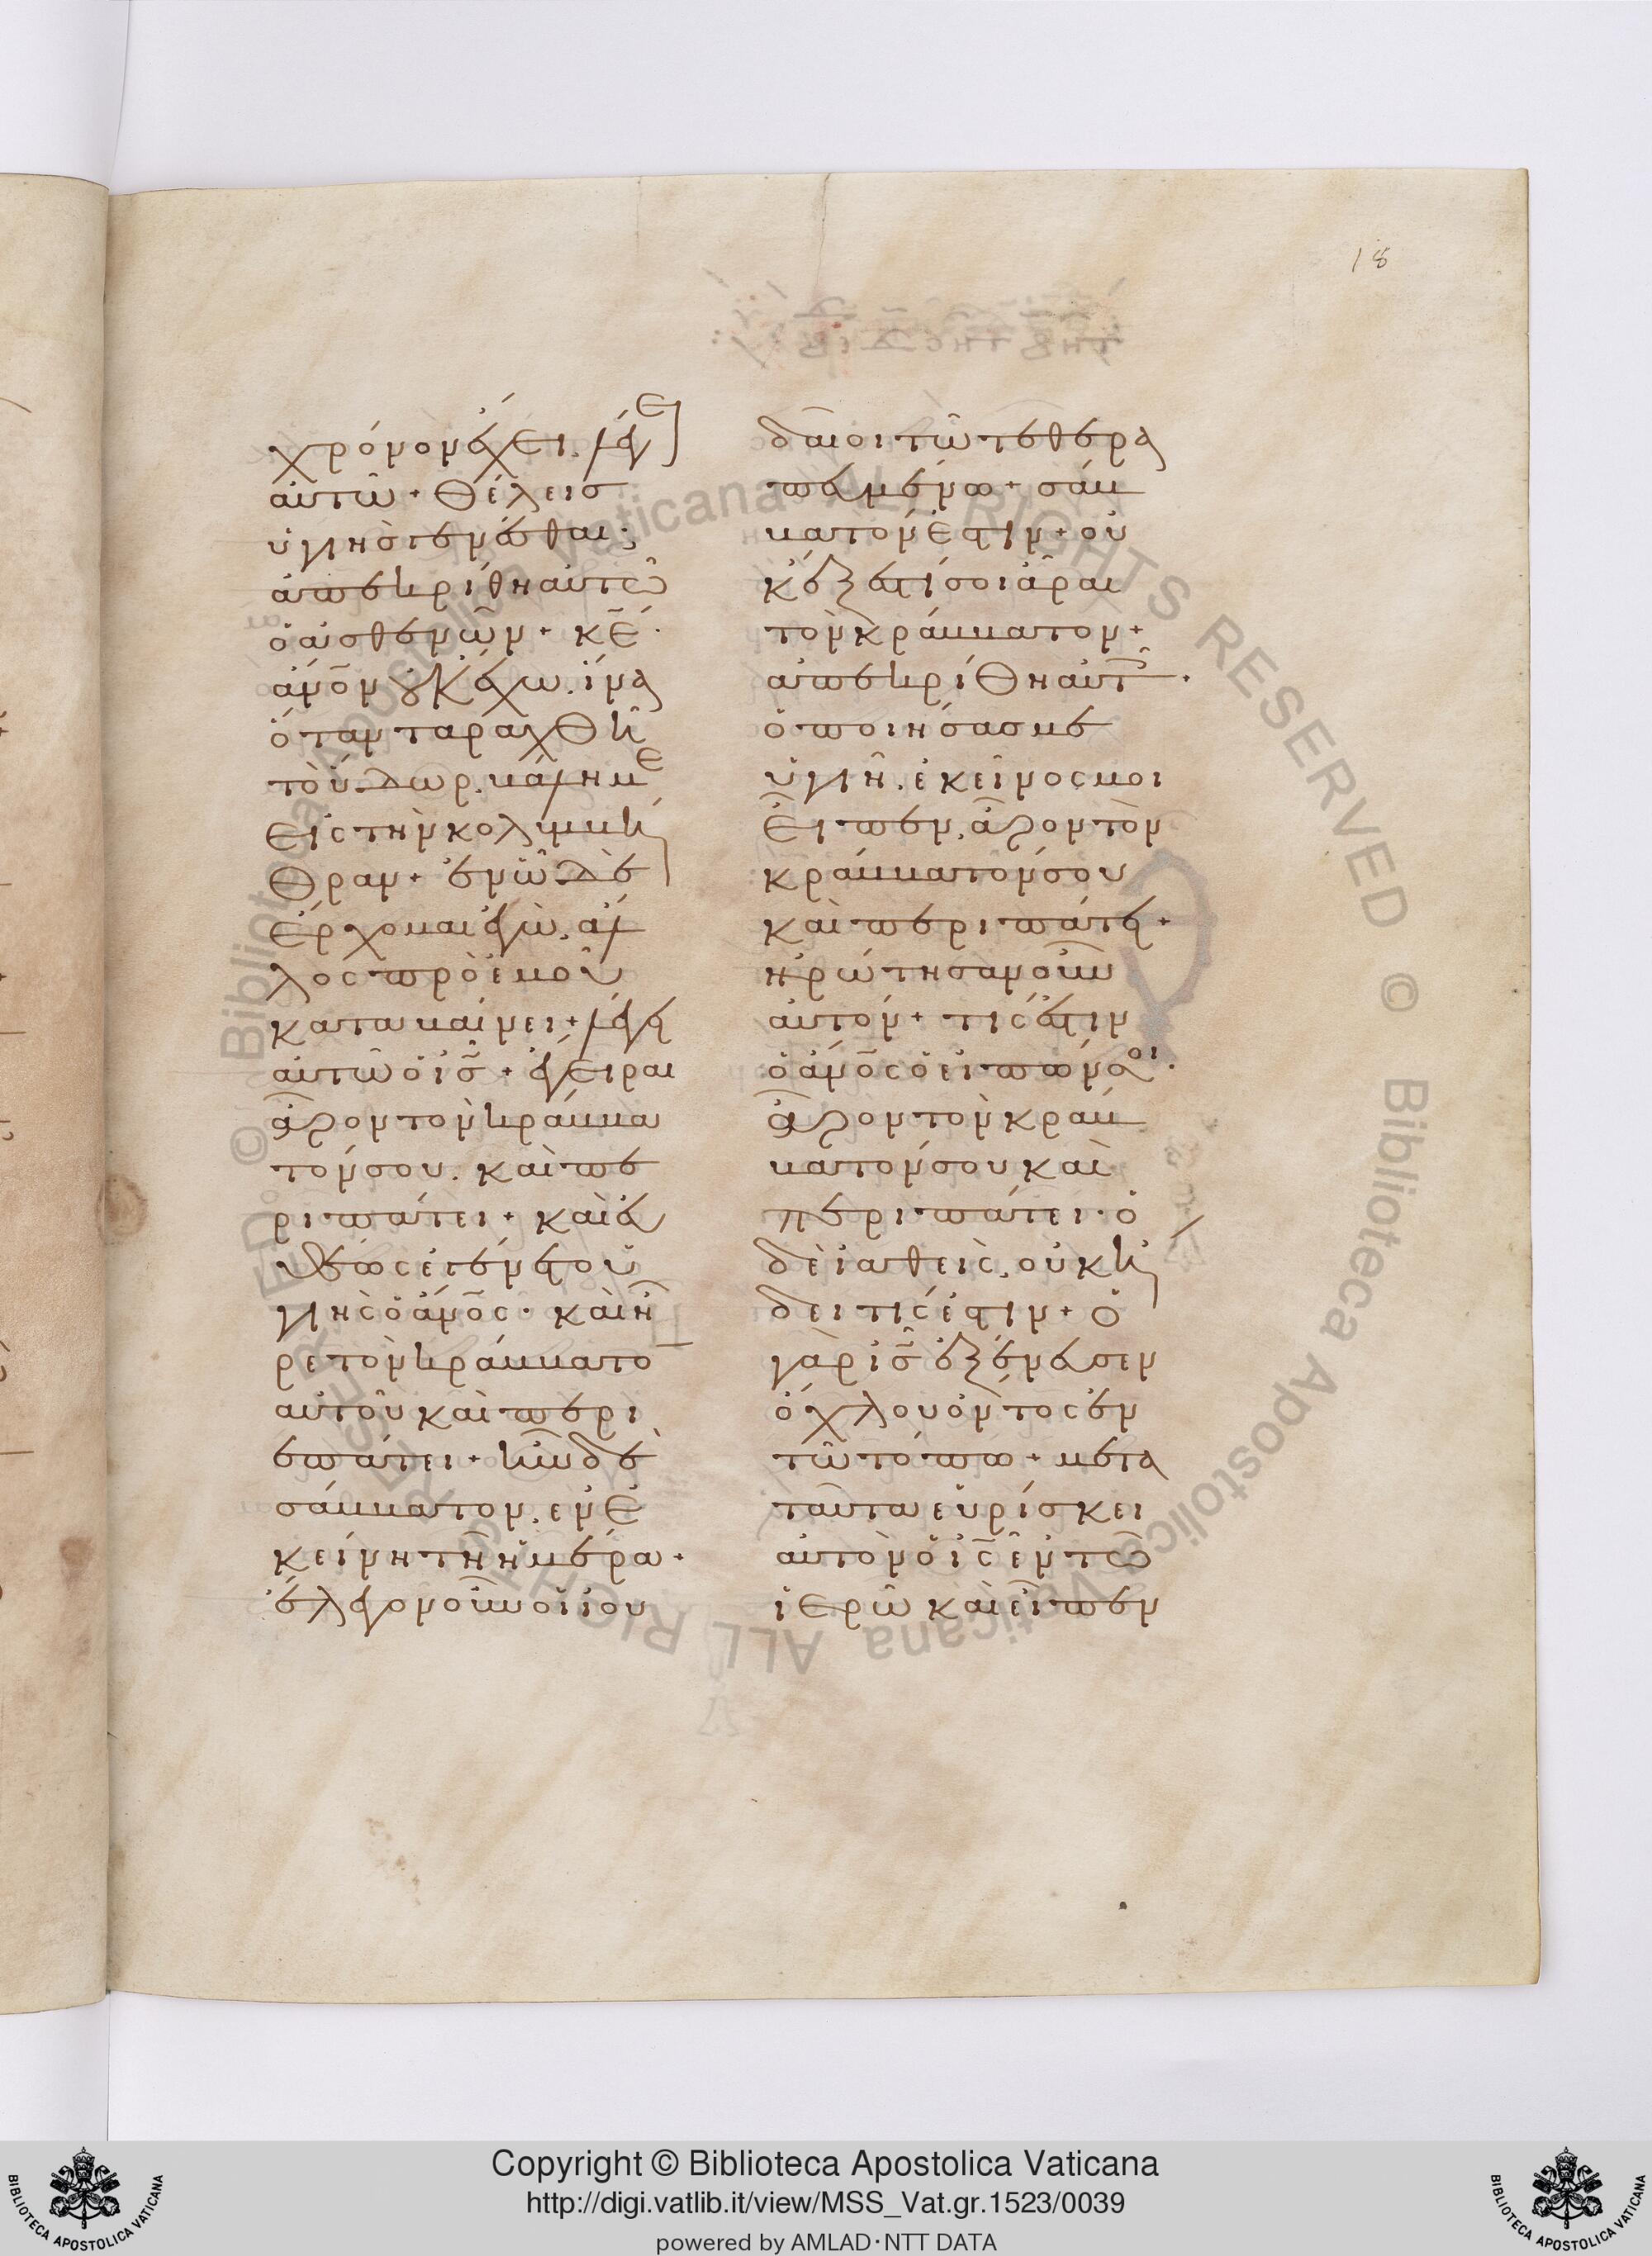 18
χρόνον ἔχει. λέγει
αὐτῶ + Θέλεισ
ὑγιὴσ γενέσθαι;
ἀπεκρίθη αὐτῶ
ὁ ἀσθενῶν + κ̅ε̅ ·
ἄν̅ο̅ν οὐκ ἔχω. ἵνα
ὅταν ταραχθῆ
τὸ ὕδωρ. βάλη με
εἰς τὴν κολυμβή
θραν + ἐν ὧ δὲ
ἔρχομαι ἐγὼ. ἄλ
λος πρὸ ἐμοῦ
καταβαίνει + λέγει
αὐτῶ ὁ ι̅σ̅ + ἔγειραι
ἆρον τὸν κράββα
τόν σου. καὶ πε
ριπάτει + καὶ εὐ
θέως ἐγένετο ὑ
γιὴς ὁ ἄν̅ο̅ς · καὶ ἦ
ρε τὸν κράββατο
αὐτοῦ καὶ περι
επάτει + ἦν δὲ
σάββατον. ἐν ἐ
κείνη τῆ ἡμέρα +
ἔλεγον οὖν οἱ ἰου
δαῖοι τῶ τεθερα
πευμένω + σάβ
βατόν ἐστιν + οὐ
κ ἔξεστί σοι ἆραι
τὸν κράββατον +
ἀπεκρίθη αὐτοῖς ·
ὁ ποιήσας με
ὑγιῆ. ἐκεῖνος μοι
εἶπεν. ἆρον τὸν
κράββατόν σου
καὶ περιπάτει +
ἠρώτησαν οὖν
αὐτόν + τίς ἐστιν
ὁ ἄν̅ο̅ς ὁ εἰπών σοι ·
ἆρον τὸν κράβ
βατόν σου καὶ
περιπάτει · ὁ
δὲ ἰαθεὶς. οὐκ ἤ
δει τίς ἐστιν + ὁ
γὰρ ι̅σ̅ ἐξένευσεν
ὄχλου ὄντος ἐν
τῶ τόπω + μετα
ταῦτα εὑρίσκει
αὐτὸν ὁ ι̅ς̅ ἐν τῶ
ἱερῶ καὶ εἶπεν
© Biblioteca Apostolica Vaticana ALL RIGHTS RESERVED © Biblioteca Apostolica Vaticana ALL RIGHTS RESERVED
Copyright © Biblioteca Apostolica Vaticana
http://digi.vatlib.it/view/MSS_Vat.gr.1523/0039
powered by AMLAD·NTT DATA
BIBLIOTECA APOSTOLICA VATICANA
BIBLIOTECA APOSTOLICA VATICANA